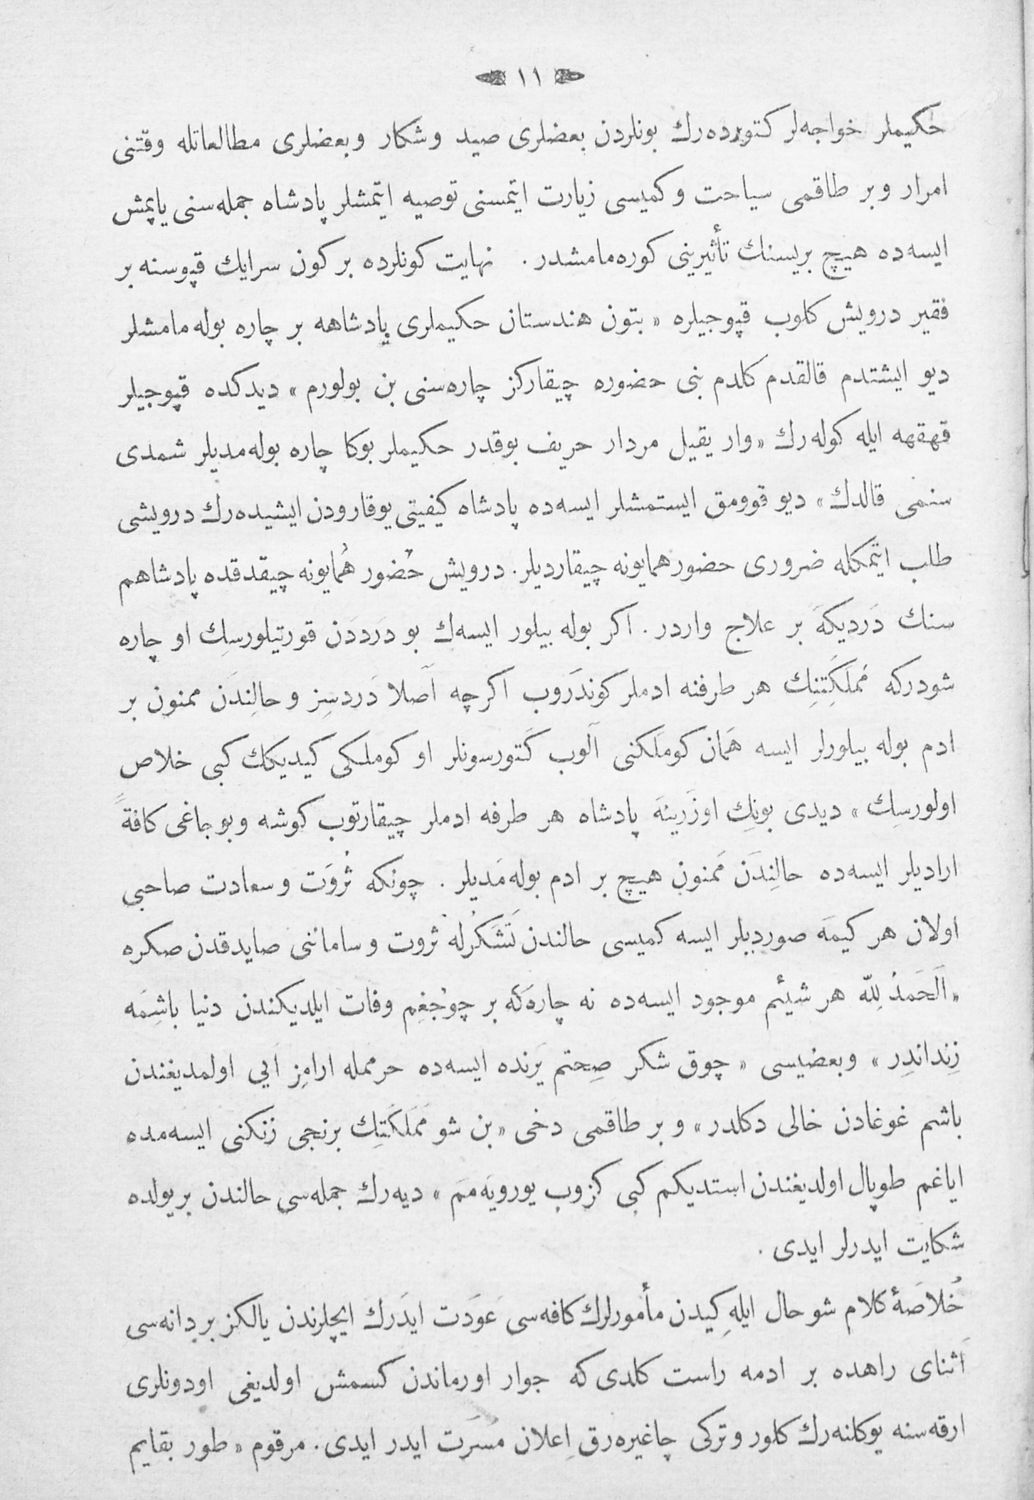 ١١
حكيملر خواجه‌لر كتورده‌رك بونلردن بعضلری صيد وشكار وبعضلری مطالعاتله وقتنی
امرار وبر طاقمی سياحت وكميسی زيارت ايتمسنی توصيه ايتمشلر پادشاه جمله‌سنی ياپمش
ايسه‌ده هيچ بريسنك تأثيرينی كوره‌مامشدر . نهايت كونلرده بر كون سرايك قپوسنه بر
فقير درويش كلوب قپوجيلره « بتون هندستان حكيملری پادشاهه بر چاره بوله‌مامشلر
ديو ايشتدم قالقدم كلدم بنی حضوره چيقاركز چاره‌سنی بن بولورم » ديدكده قپوجيلر
قهقهه ايله كوله‌رك «وار يقيل مردار حريف بوقدر حكيملر بوكا چاره بوله‌مديلر شمدی
سنمی قالدك » ديو قوومق ايستمشلر ايسه‌ده پادشاه كيفيتی يوقارودن ايشيده‌رك درويشی
طلب ايتمكله ضروری حضورهمايونه چيقارديلر. درويش حُضور هُمايونه چيقدقده پادشاهم
سنك دَرديكَه بر علاج واردر . اكر بوله بيلور ايسه‌ك بو دَرددَن قورتيلورسِك او چاره
شودركه مَملَكِتِنِك هر طرفنه ادملر كوندَروب اكرچه اَصلا دَردسِز و حالِندَن ممنون بر
ادم بوله بيلورلر ايسه هَمان كومَلكنی آلوب كَتورسونلر او كوملكی كيديكك كبی خلاص
اولورسِك » ديدی بونِك اوزَرينَه پادشاه هر طرفه ادملر چيقارتوب كوشه وبوجاغی كافةً
اراديلر ايسه‌ده حالِندَن مَمنون هيچ بر ادم بوله‌مَديلر . چونكه ثُروَت وسعادت صاحبی
اولان هر كيمَه صورديلر ايسه كميسی حالندن تَشَكُرله ثروت وسامانی صايدقدن صكره
« اَلحَمدُ لِلّه هر شيئم موجود ايسه‌ده نه چارَه‌كَه بر چوُجُغم وفات ايلديكندن دنيا باشِمَه
زِنداندِر » وبعضيسی « چوق شكر صِحتم يَرنده ايسه‌ده حرممله ارامِز اَيی اولمديغندن
باشم غوغادن خالی دكلدر » و بر طاقمی دخی «بن شو مَملَكَتِك برنجی زنكنی ايسه‌مده
اياغم طوپال اولديغندن استديكم كبی كزوب يورويه‌ممَ » ديه‌رك جمله‌سی حالندن بريولده
شكايت ايدرلر ايدی .
خُلاصَهٔ كلام شو حال ايلهِ كيدن مأمورلرك كافه‌سی عَودَت ايدَرك ايچلرندن يالكز بردانه‌سی
اَثنای راهده بر ادمه راست كلدی كه جوار اورماندن كسمش اولديغی اودونلری
ارقه‌سنه يوكلنه‌رك كلور وتركی چاغيره‌رق اِعلان مَسَرت ايدر ايدی. مرقوم « طور بقايم